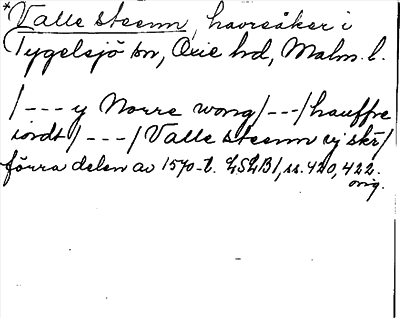 *Valle steenn, havreåker i
Tygelsjö sn, Oxie hd, Malm. l.
/--- y Norre wong/---/hauffre
iordt/---/Valle steenn ij skr/
förra delen av 1570-t. LSLB1, ss. 420, 422.
orig.